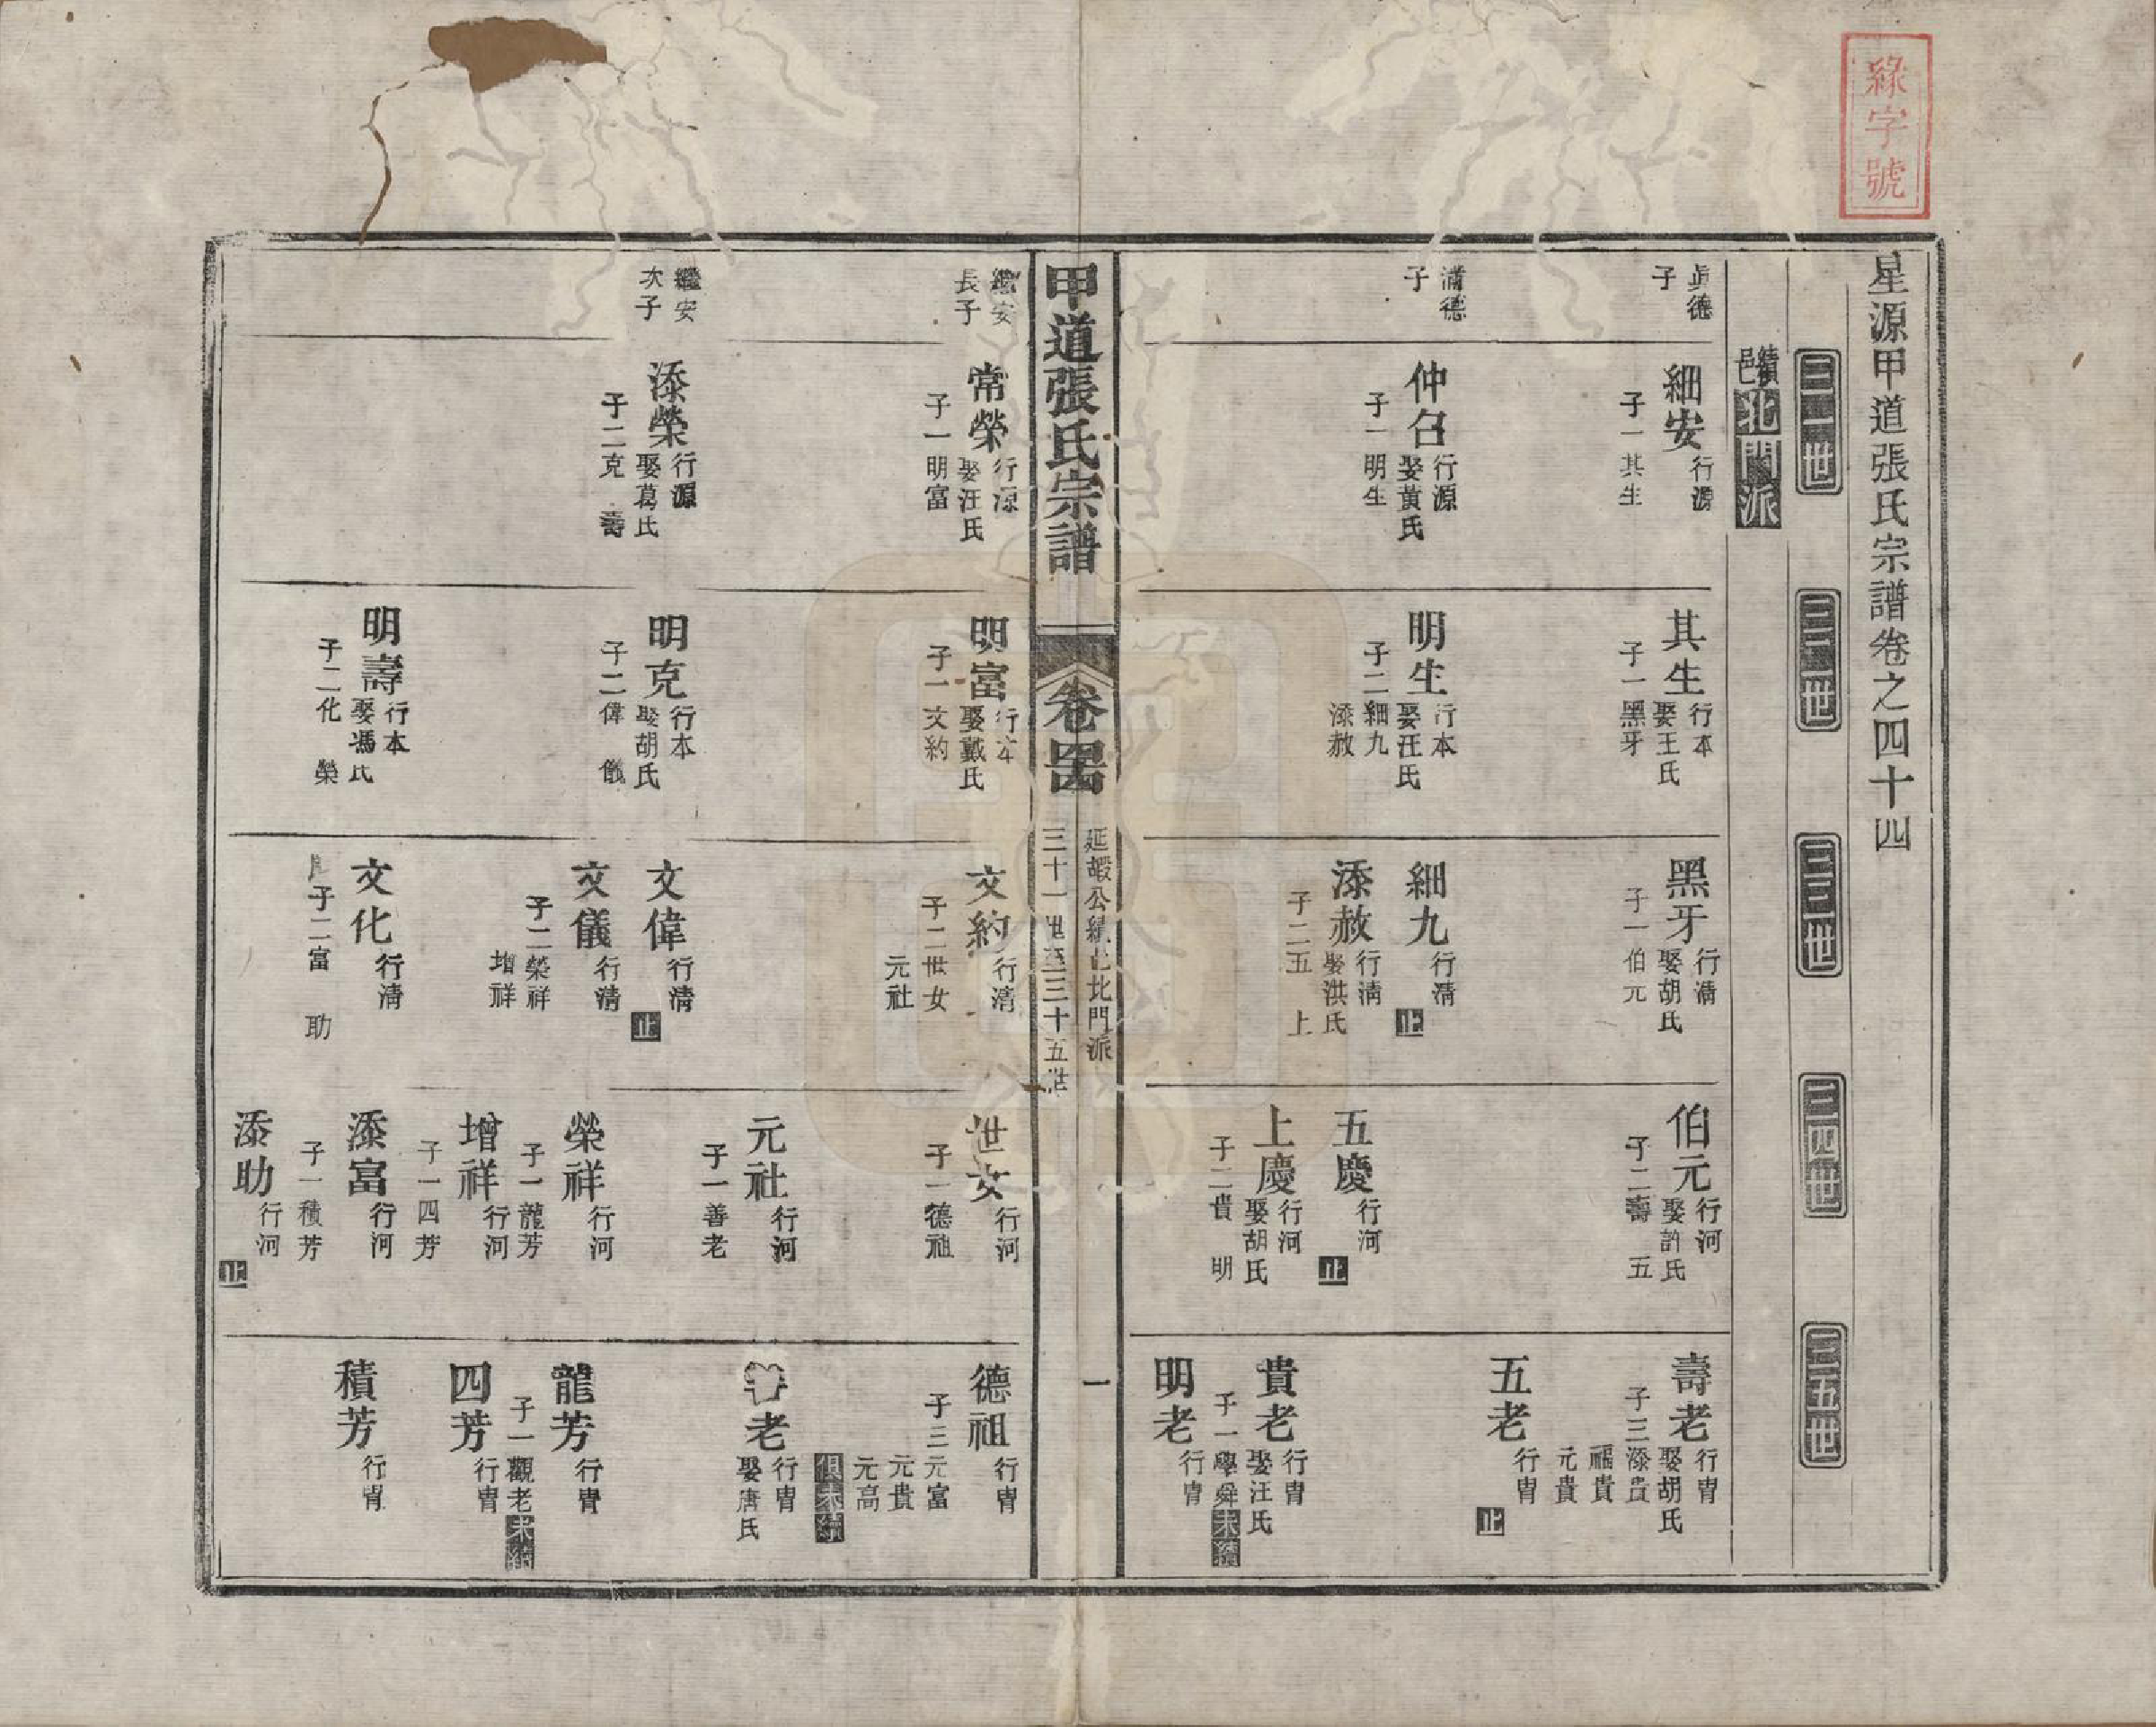 緣字號
星源甲道張氏宗譜卷之四十四
三一世
三二世
三三世
三四世
三五世
績邑北門派
眞德
子
細安
行源
子一其生
其生
行本
娶王氏
子一黑牙
黑牙
行淸
娶胡氏
子一伯元
伯元
行河
娶許氏
子二壽 五
壽老
行胄
娶胡氏
子三添貴
福貴
元貴
五老
行胄
止
滿德
子
仲召
行源
娶黃氏
子一明生
明生
行本
娶汪氏
子二細九
添赦
細九
行淸
止
添赦
行淸
娶洪氏
子二五 上
五慶
行河
止
上慶
行河
娶胡氏
子二貴 明
貴老
行胄
娶汪氏
子一學舜未續
明老
行胄
甲道張氏宗譜
卷四十四
延嘏公績邑北門派
三十一世至三十五世
一
繼安
長子
常榮
行源
娶汪氏
子一明富
明富
行本
娶戴氏
子一文約
文約
行淸
子二世女
元社
世女
行河
子一德祖
德祖
行胄
子三元富
元貴
元高
俱未續
元社
行河
子一善老
老
行胄
娶唐氏
繼安
次子
添榮
行源
娶葛氏
子二克 壽
明克
行本
娶胡氏
子二偉 儀
文偉
行淸
止
文儀
行淸
子二榮祥
增祥
榮祥
行河
子一龍芳
龍芳
行胄
子一觀老未續
增祥
行河
子一四芳
四芳
行胄
明壽
行本
娶馮氏
子二化 榮
文化
行淸
子二富 助
添富
行河
子一積芳
積芳
行胄
添助
行河
止